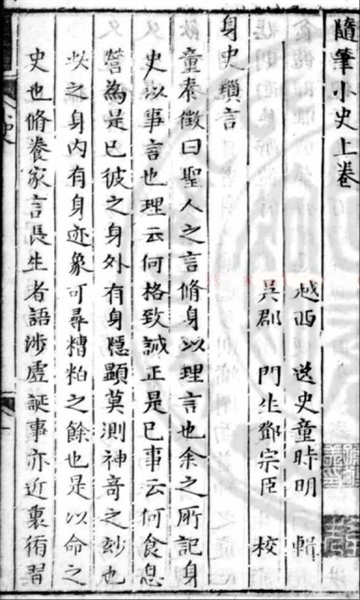 隨筆小史上卷
越西 迭史童時明 輯
吳郡 門生鄧宗臣 校
身史瑣言
童素徵曰聖人之言脩身以理言也余之所記身
史以事言也理云何格致誠正是已事云何食息
營為是已彼之身外有身隱顯莫測神奇之玅也
此之身內有身迹象可尋糟粕之餘也是以命之
史也脩養家言長生者語涉虛誕事亦近裏術習